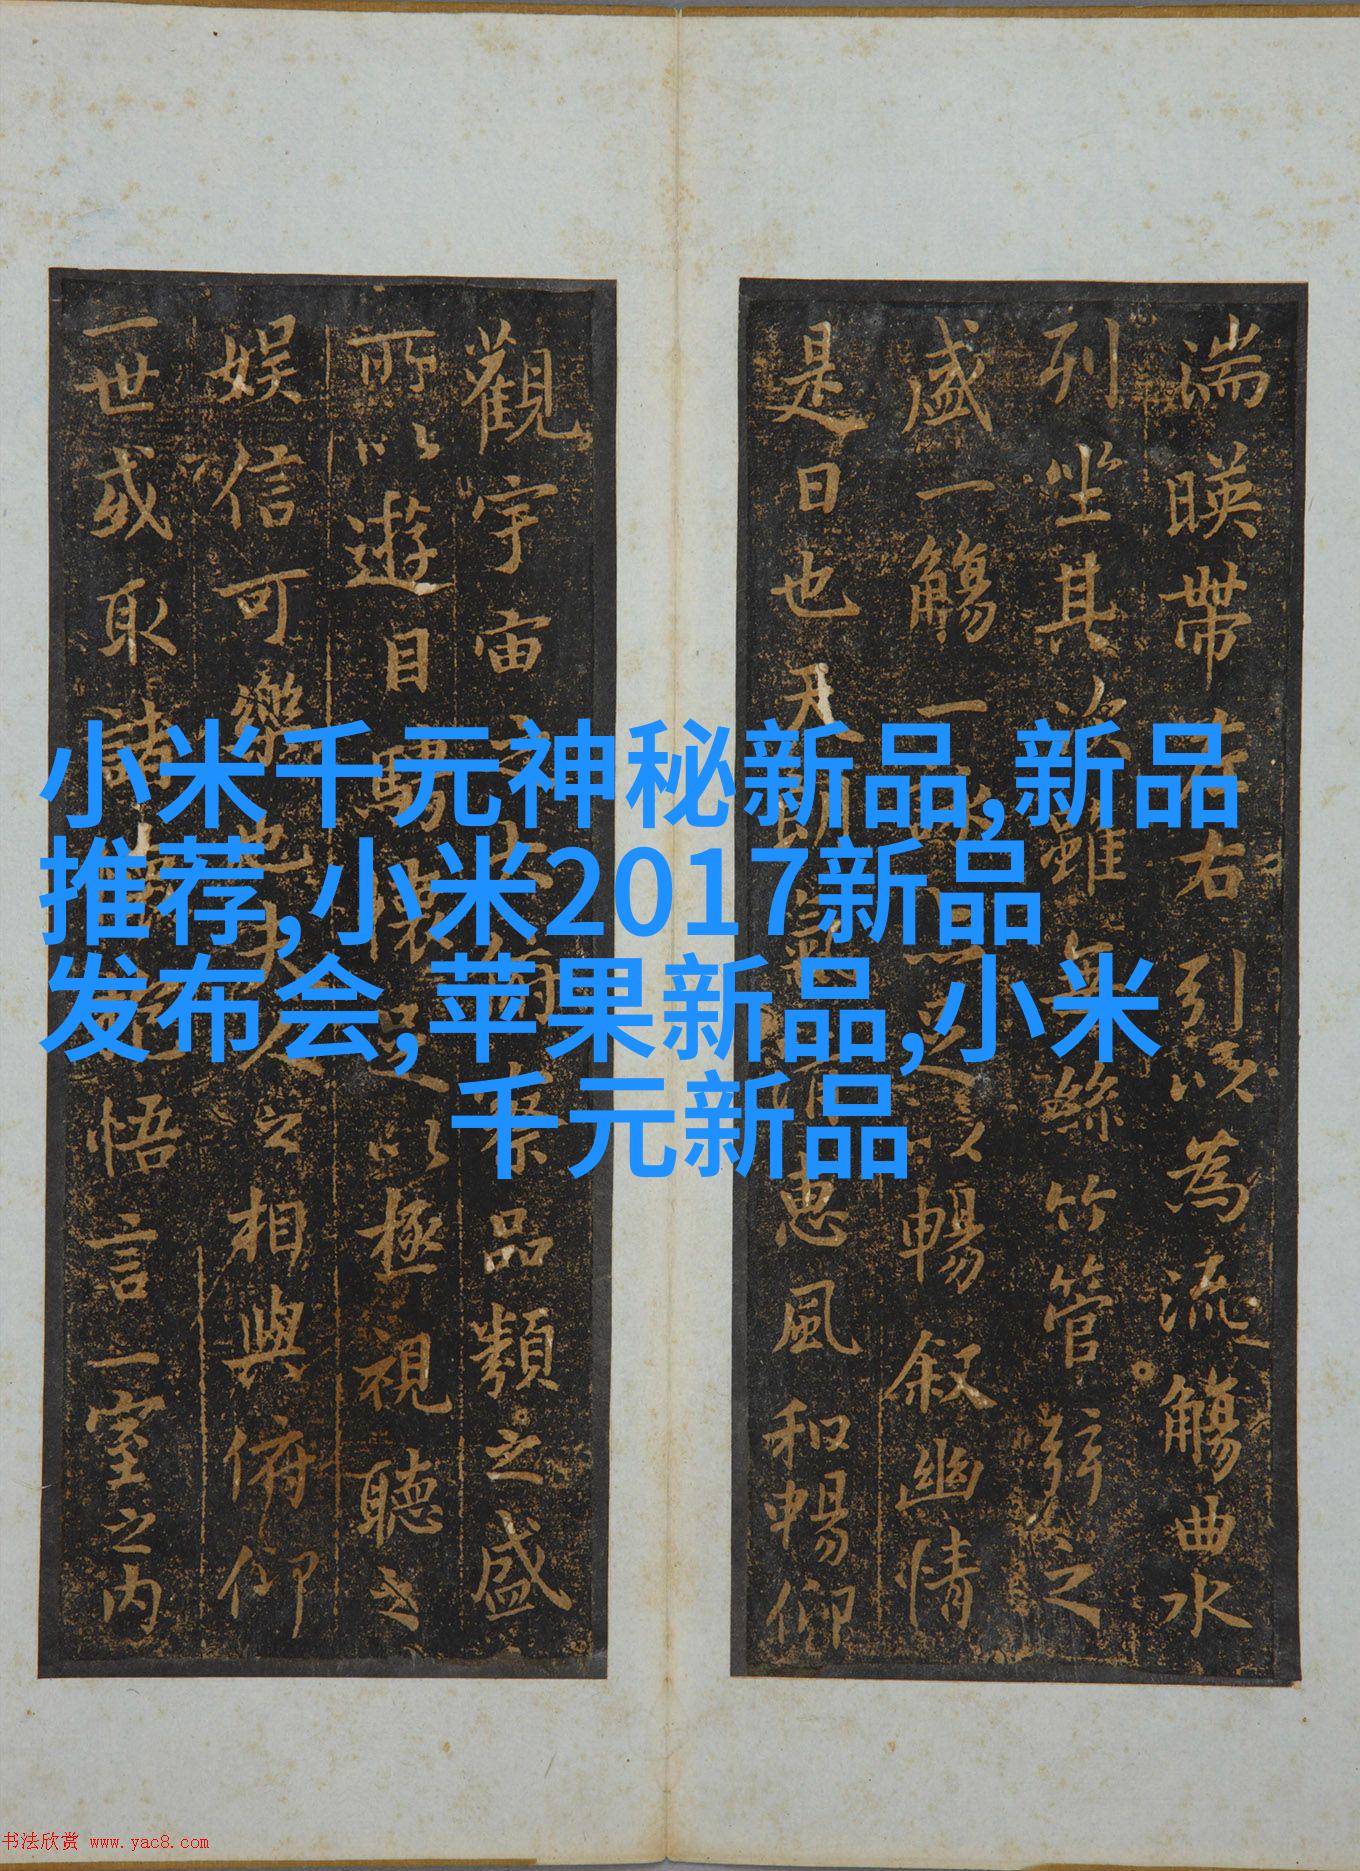 湍暎帶左右引以為流觴曲水
列坐其次雖無絲竹管弦之
盛一觴一足以暢叙幽情
是日也天朗惠風和暢仰
觀宇宙之大俯察品類之盛
所以遊目騁懷足以極視聽之
娛信可樂也夫人之相與俯仰
一世或取諸悟言一室之内
小米千元神秘新品,新品
推荐,小米2017新品
发布会,苹果新品,小米
千元新品
书法欣赏 www.yac8.com